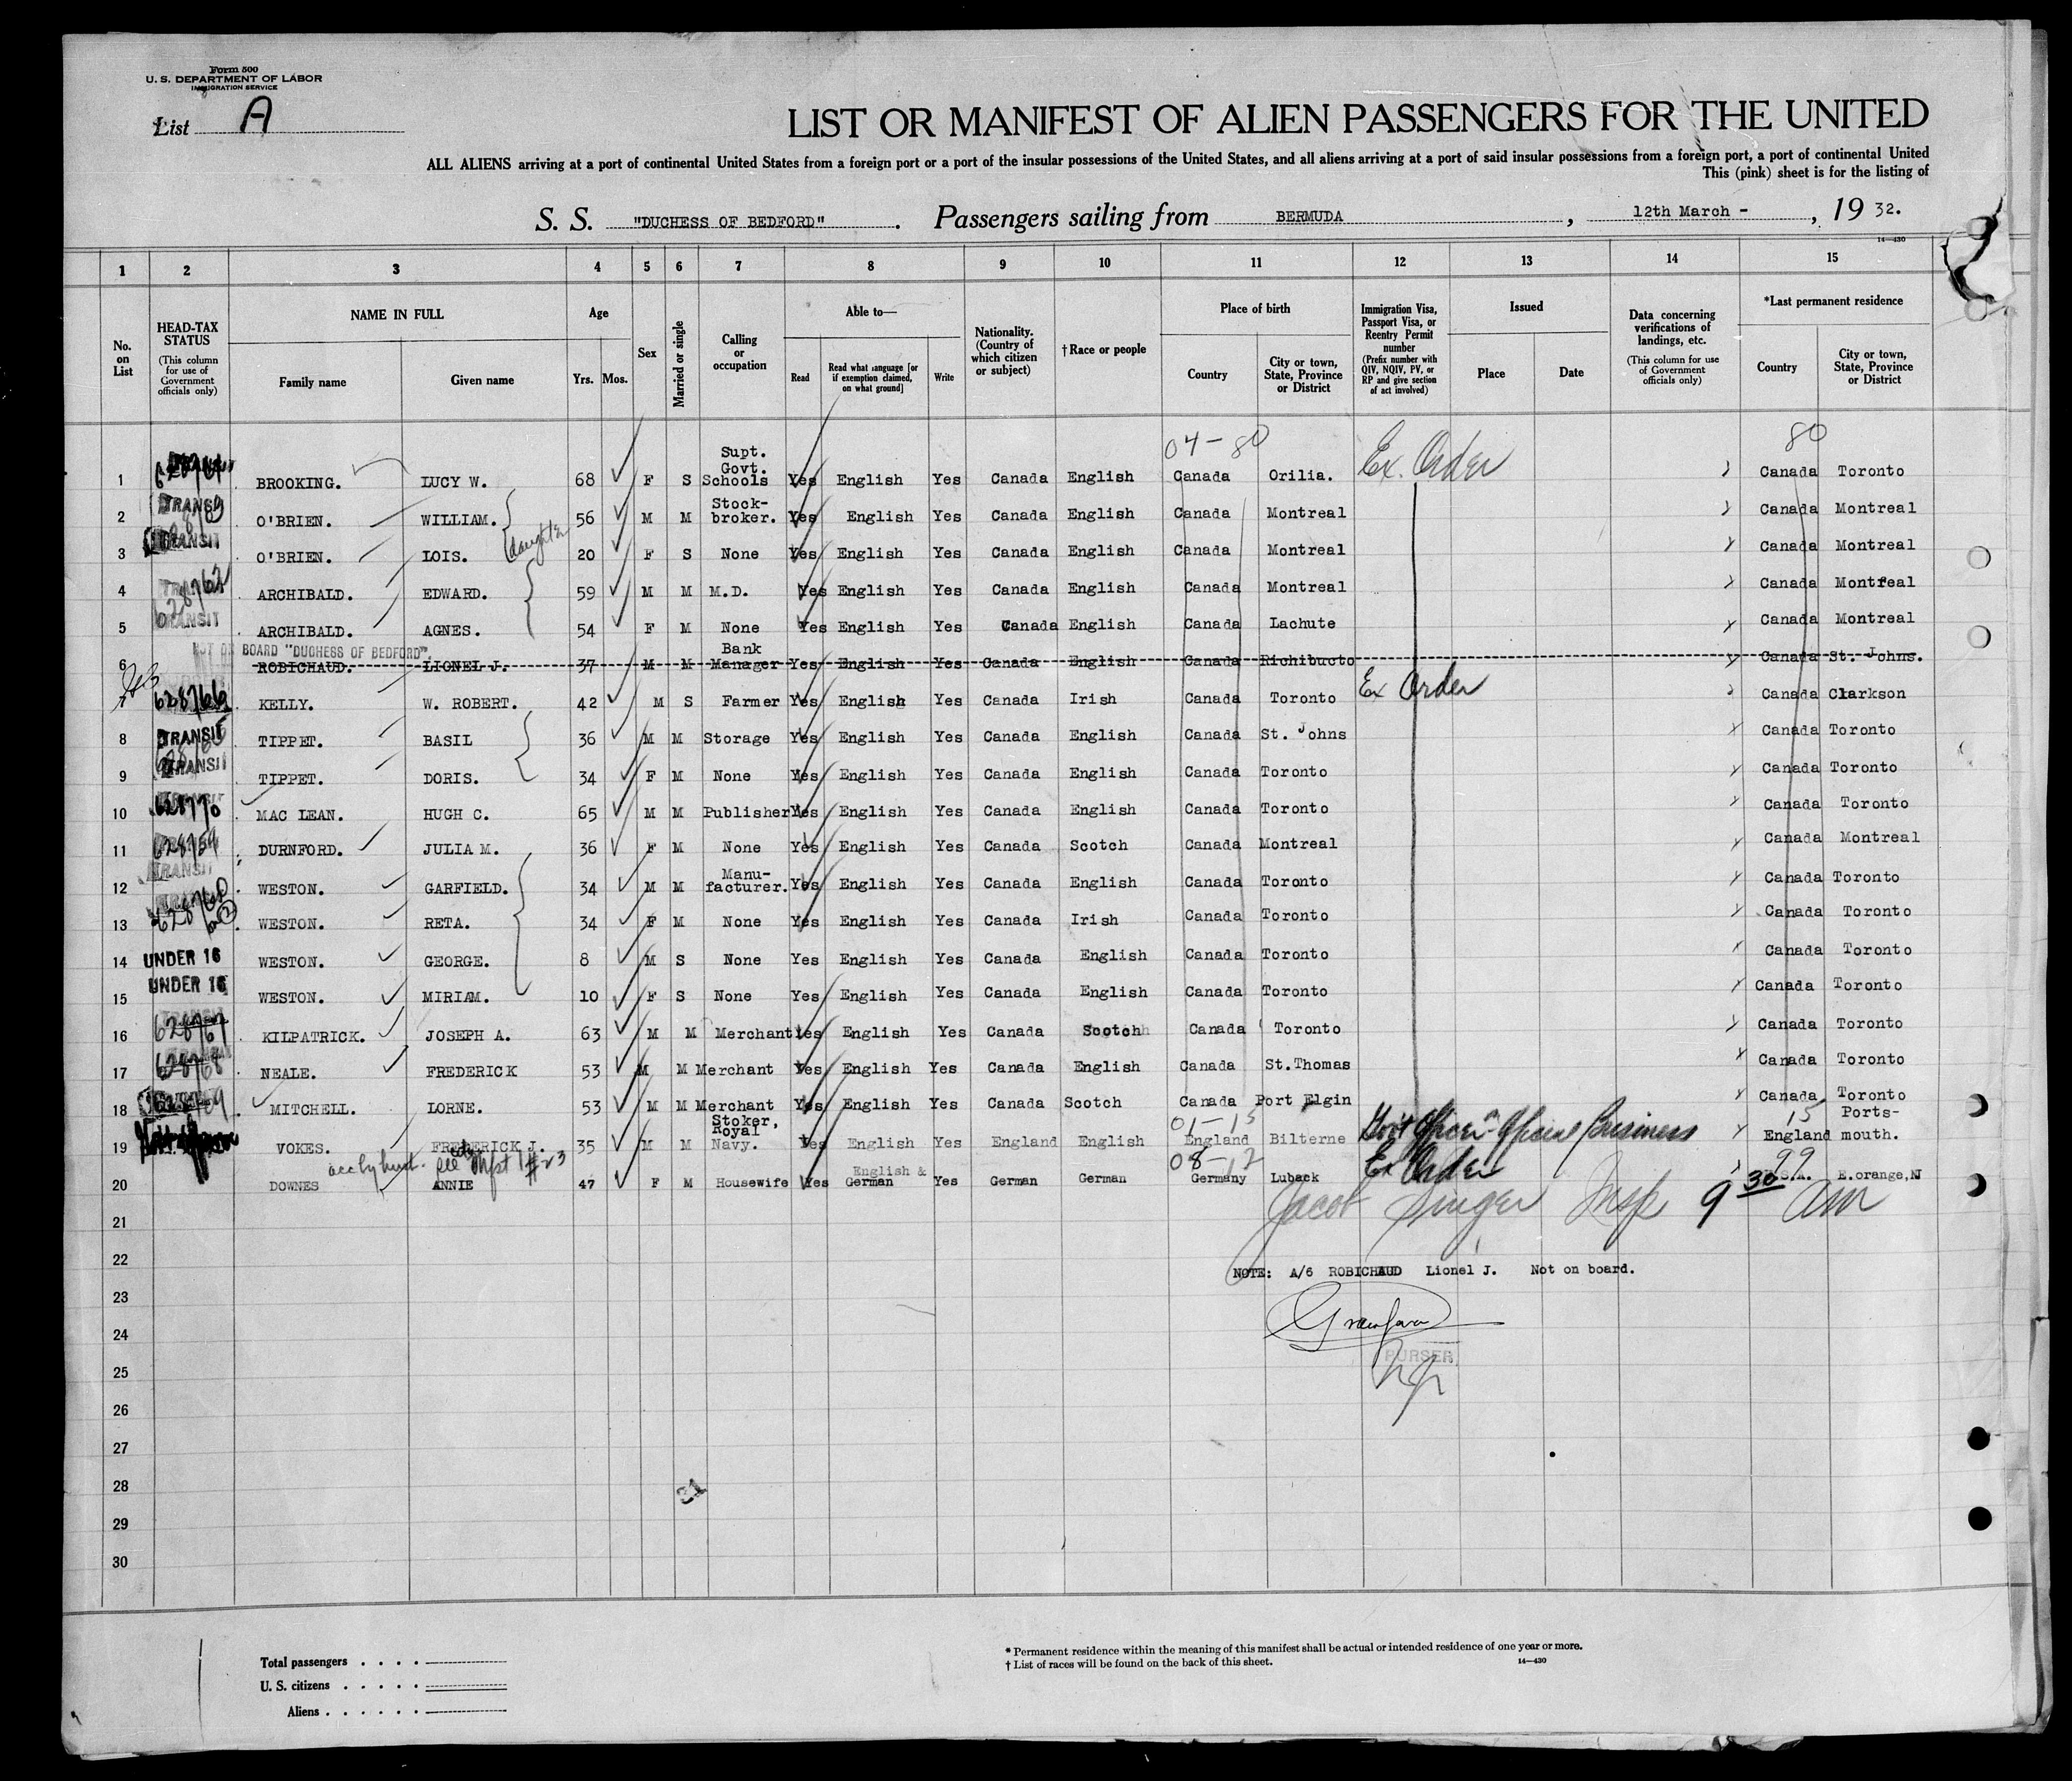 Form 500
U. S. DEPARTMENT OF LABOR
IMMIGRATION SERVICE
List A
LIST OR MANIFEST OF ALIEN PASSENGERS FOR THE UNITED
ALL ALIENS arriving at a port of continental United States from a foreign port or a port of the insular possessions of the United States, and all aliens arriving at a port of said insular possessions from a foreign port, a port of continental United
This (pink) sheet is for the listing of
S. S. "DUCHESS OF BEDFORD". Passengers sailing from BERMUDA, 12th March -, 19 32.
14—430
1 2 3 4 5 6 7 8 9 10 11 12 13 14 15
No. on List
HEAD-TAX STATUS (This column for use of Government officials only)
NAME IN FULL Family name Given name
Age Yrs. Mos.
Sex
Married or single
Calling or occupation
Able to— Read Read what language [or if exemption claimed, on what ground] Write
Nationality. (Country of which citizen or subject)
† Race or people
Place of birth Country City or town, State, Province or District
Immigration Visa, Passport Visa, or Reentry Permit number (Prefix number with QIV, NQIV, PV, or RP and give section of act involved)
Issued Place Date
Data concerning verifications of landings, etc. (This column for use of Government officials only)
*Last permanent residence Country City or town, State, Province or District
04-80 80
1 BROOKING. LUCY W. 68 F S Supt. Govt. Schools Yes English Yes Canada English Canada Orilia. Ex. Order Canada Toronto
2 TRANSIT O'BRIEN. WILLIAM. 56 M M Stock-broker. Yes English Yes Canada English Canada Montreal Canada Montreal
3 TRANSIT O'BRIEN. LOIS. (daughter 20 F S None Yes English Yes Canada English Canada Montreal Canada Montreal
4 ARCHIBALD. EDWARD. 59 M M M.D. Yes English Yes Canada English Canada Montreal Canada Montreal
5 TRANSIT ARCHIBALD. AGNES. 54 F M None Yes English Yes Canada English Canada Lachute Canada Montreal
NOT ON BOARD "DUCHESS OF BEDFORD".
6 ROBICHAUD. LIONEL J. 37 M M Bank Manager Yes English Yes Canada English Canada Richibucto Canada St. Johns.
7 628766 KELLY. W. ROBERT. 42 M S Farmer Yes English Yes Canada Irish Canada Toronto Ex Order Canada Clarkson
8 TRANSIT TIPPET. BASIL 36 M M Storage Yes English Yes Canada English Canada St. Johns Canada Toronto
9 TRANSIT TIPPET. DORIS. 34 F M None Yes English Yes Canada English Canada Toronto Canada Toronto
10 628770 MAC LEAN. HUGH C. 65 M M Publisher Yes English Yes Canada English Canada Toronto Canada Toronto
11 628759 DURNFORD. JULIA M. 36 F M None Yes English Yes Canada Scotch Canada Montreal Canada Montreal
12 TRANSIT WESTON. GARFIELD. 34 M M Manu-facturer. Yes English Yes Canada English Canada Toronto Canada Toronto
13 WESTON. RETA. 34 F M None Yes English Yes Canada Irish Canada Toronto Canada Toronto
14 UNDER 16 WESTON. GEORGE. 8 M S None Yes English Yes Canada English Canada Toronto Canada Toronto
15 UNDER 16 WESTON. MIRIAM. 10 F S None Yes English Yes Canada English Canada Toronto Canada Toronto
16 628767 KILPATRICK. JOSEPH A. 63 M M Merchant Yes English Yes Canada Scotch Canada Toronto Canada Toronto
17 628768 NEALE. FREDERICK 53 M M Merchant Yes English Yes Canada English Canada St.Thomas Canada Toronto
18 MITCHELL. LORNE. 53 M M Merchant Yes English Yes Canada Scotch Canada Port Elgin Canada Toronto
01-15 15
19 VOKES. FREDERICK J. 35 M M Stoker, Royal Navy. Yes English Yes England English England Bilterne Gov't Officer on Official Business England Ports-mouth.
acc by husb. see Mfst 1 #23 08-12 99
20 DOWNES ANNIE 47 F M Housewife Yes English & German Yes German German Germany Luback Ex Order U.S.A. E.orange,NJ
Jacob Singer Insp 9 30 am
21
22
NOTE: A/6 ROBICHAUD Lionel J. Not on board.
23
24
25
PURSER
26
27
28
29
30
Total passengers
U. S. citizens
Aliens
* Permanent residence within the meaning of this manifest shall be actual or intended residence of one year or more.
† List of races will be found on the back of this sheet. 14—430